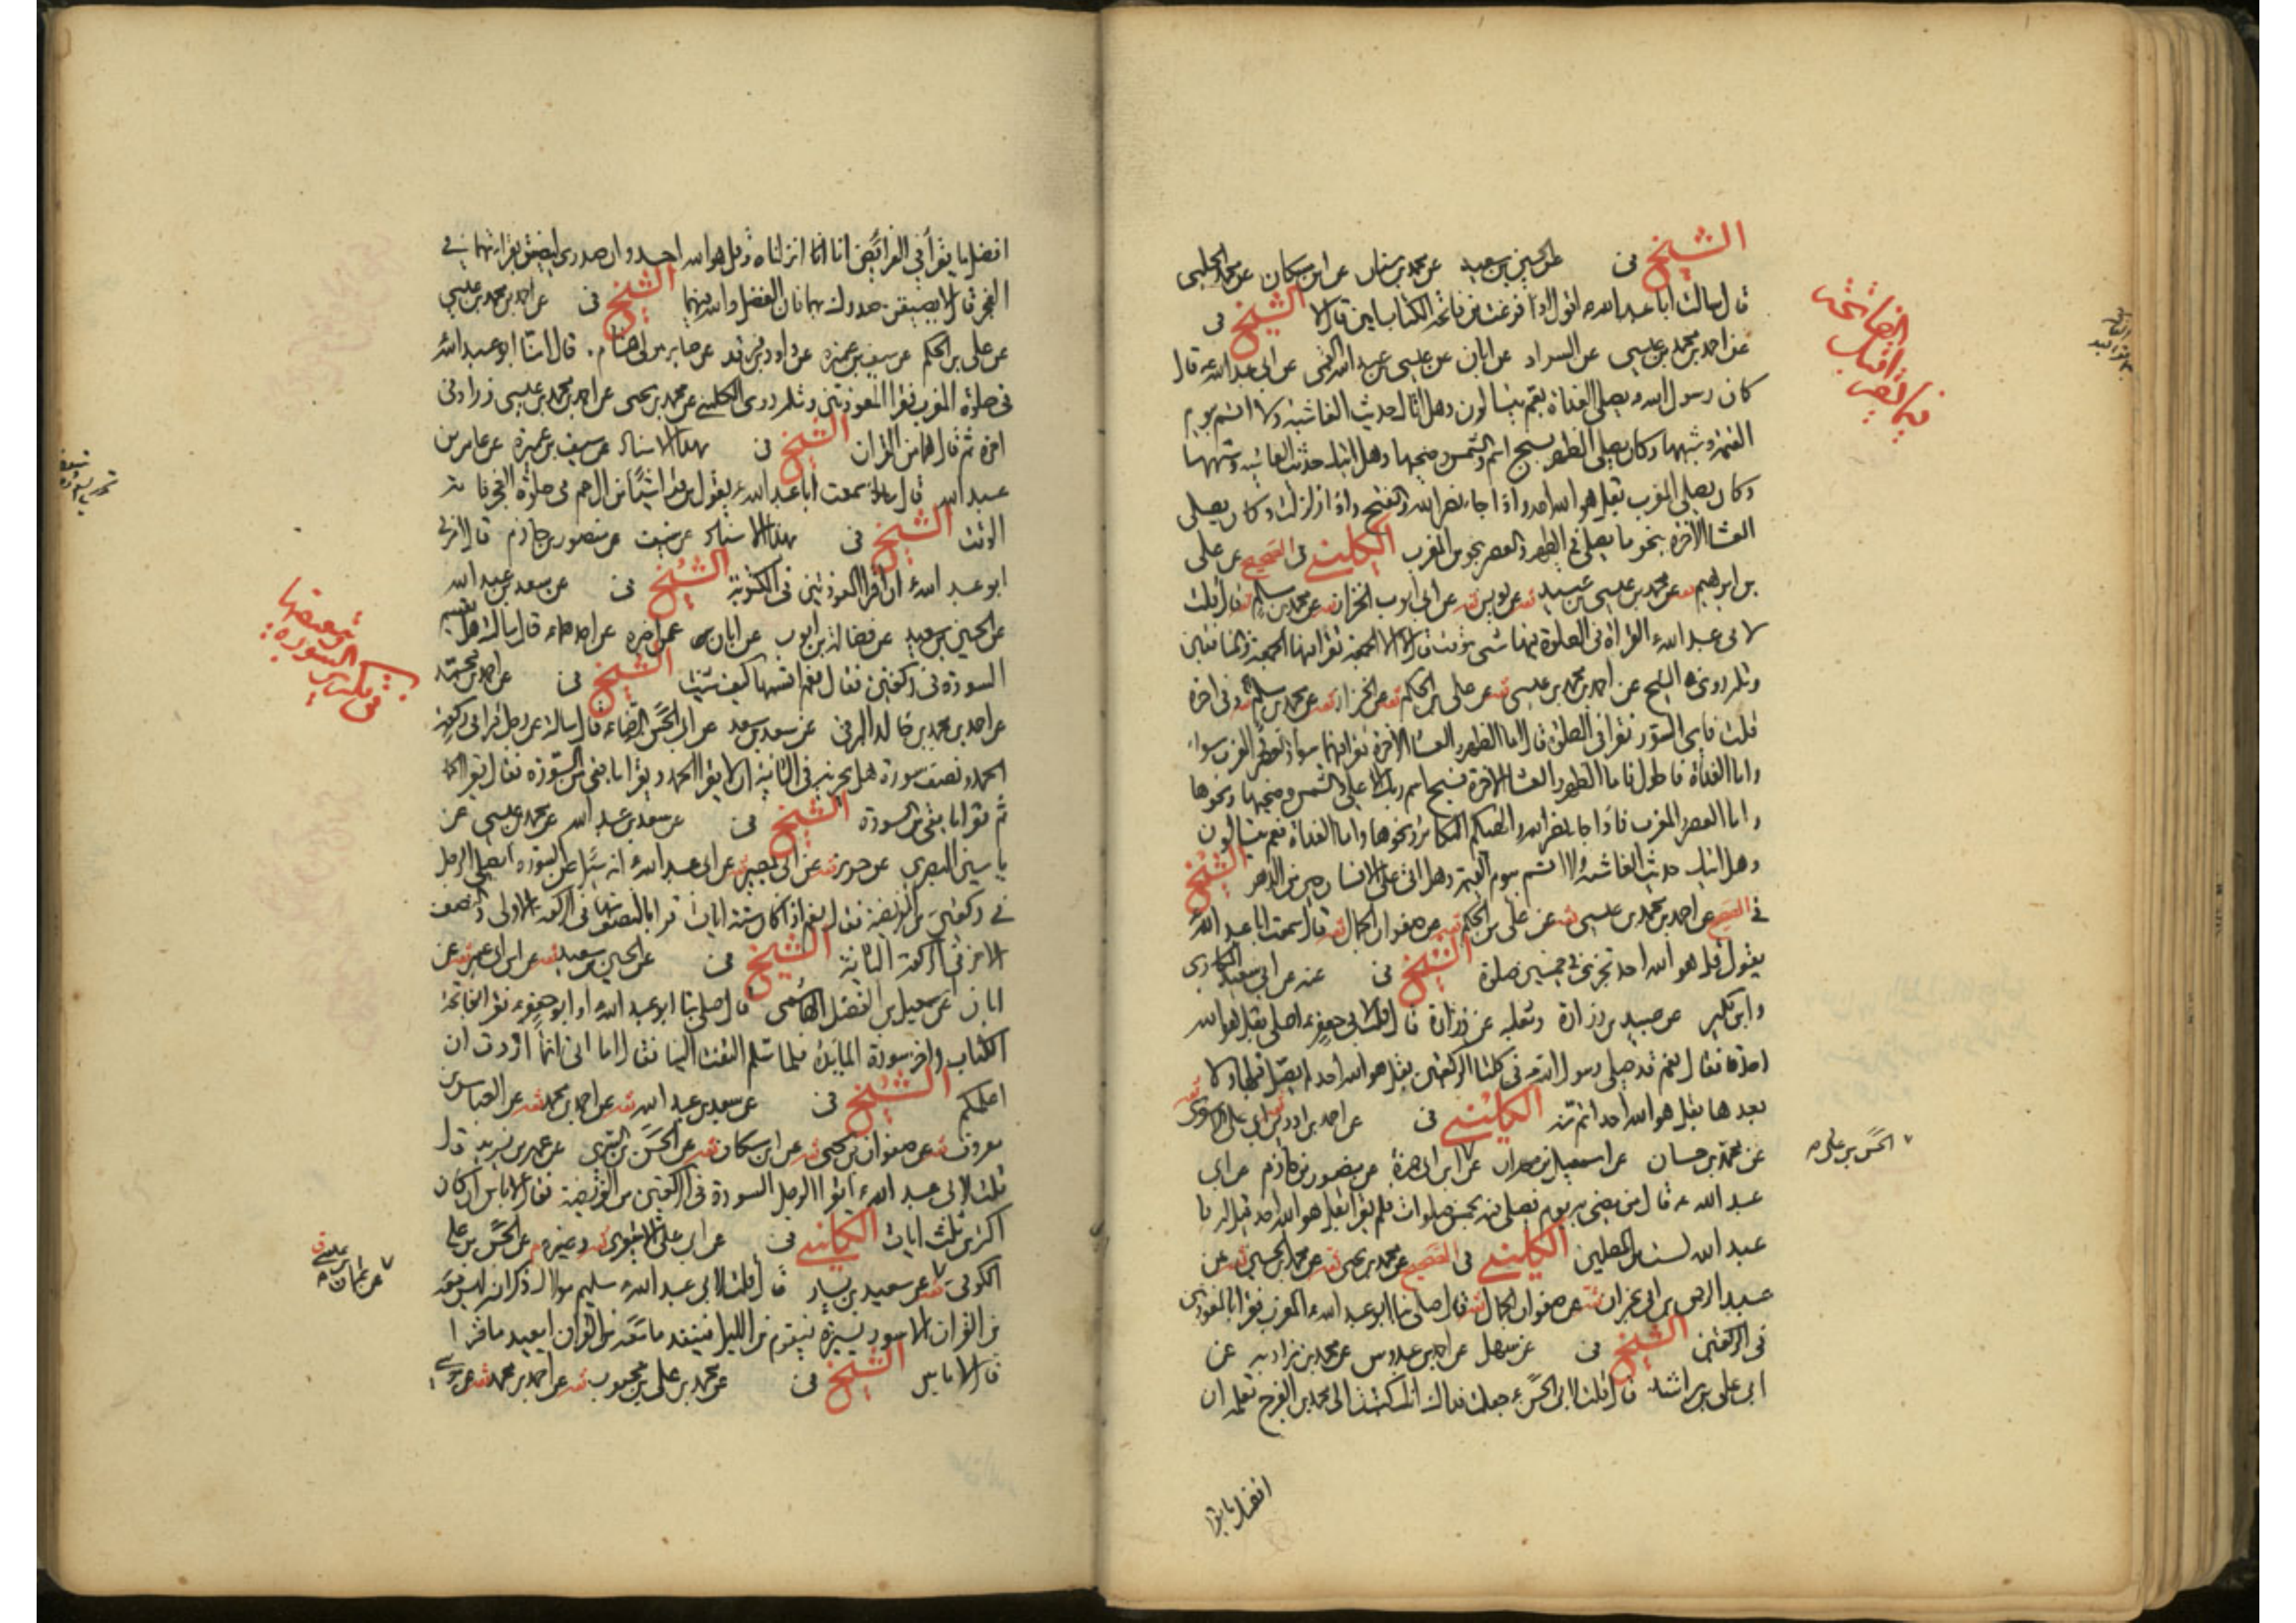 الشيخ في عن الحسين بن سعيد عن محمد بن سنان عن ابن مسكان عن محمد الحلبي
قال سالت ابا عبد الله ع اقول اذا فرغت من فاتحة الكتاب امين قال لا الشيخ في
عن احمد بن محمد بن عيسى عن السراد عن ابان عن عيسى بن عبد الله القمي عن ابي عبد الله ع قال
كان رسول الله ص يصلي الغداة بعم يتسالون وهل اتاك حديث الغاشية ولا اقسم بيوم
القيمة وشبهها وكان يصلي الظهر بسبح اسم والشمس وضحيها وهل اتيك حديث الغاشية وشبهها
وكان يصلي المغرب بقل هو الله احد واذا جاء نصر الله والفتح واذا زلزلت وكان يصلي
العشا الاخرة بنحو ما يصلي في الظهر والعصر بنحو من المغرب الكليني في الصحيح عن علي
بن ابراهيم ثقه عن محمد بن عيسى بن عبيد ثقه عن يونس ثقه عن ابي ايوب الخزاز ثقه عن محمد بن مسلم ثقه قال قلت
لابي عبد الله ع القراة في الصلوة فيها شي موقت قال لا الا الجمعة تقرا فيها الجمعة والمنافقين
وروى الشيخ عن احمد بن محمد بن عيسى ثقه عن علي بن الحكم ثقه عن الخزاز ثقه عن محمد بن مسلم ثقه وفي اخره
قلت فاي السور نقرا في الصلوة قال اما الظهر والعشا الاخرة تقرا فيهما سوا والعصر والمغرب سواء
واما الغداة فاطول فاما الظهر والعشا الاخرة فسبح اسم ربك الاعلى والشمس وضحيها ونحوها
واما العصر والمغرب فاذا جاء نصر الله والهيكم التكاثر ونحوها واما الغداة فعم يتسالون
وهل اتيك حديث الغاشية ولا اقسم بيوم القيمة وهل اتى على الانسان حين من الدهر الشيخ
في الصحيح عن احمد بن محمد بن عيسى ثقه عن علي بن الحكم ثقه عن صفوان الجمال ثقه قال سمعت ابا عبد الله ع
يقول قل هو الله احد تجزي في خمسين صلوة الشيخ في عنه عن ابي سعيد المكاري
وابن بكير عن عبيد بن زرارة وثعلبة عن زرارة قال قلت لابي جعفر ع اصلي بقل هو الله
احد فقال نعم قد صلى رسول الله ص في كلتا الركعتين بقل هو الله احد لم يصل قبلها ولا
بعدها بقل هو الله احد اتم منه الكليني في عن احمد بن ادريس ابي علي الاشعري ثقه
عن محمد بن حسان عن اسمعيل بن مهران عن ابن ابي حمزة عن منصور بن حازم عن ابي
عبد الله ع قال من مضى به يوم فصلى فيه بخمس صلوات فلم يقرا بقل هو الله احد قيل له يا
عبد الله لست من المصلين الكليني في الصحيح عن محمد بن يحيى ثقه عن محمد بن الحسين ثقه عن
عبد الرحمن بن ابي نجران ثقه عن صفوان الجمال ثقه قال صلى بنا ابو عبد الله ع المغرب فقرا بالمعوذتين
في الركعتين الشيخ في عن سهل عن احمد بن عبدوس عن محمد بن زادبه عن
ابي علي بن راشد قال قلت لابي الحسن ع جعلت فداك انك كتبت الى محمد بن الفرج تعلمه ان
افضل ما يقرا
الفاتحة
الحسن بن علي
افضل ما يقرأ في الفرائض انا انزلناه وقل هو الله احد وان صدري ليضيق بقراءتهما في
الفجر قال لا يضيقن صدرك بهما فان الفضل والله فيهما الشيخ في عن احمد بن محمد بن عيسى
عن علي بن الحكم عن سيف بن عميرة عن داود بن فرقد عن صابر مولى بسام قال امنا ابو عبد الله
في صلوة المغرب فقرا المعوذتين وروى الكليني عن محمد بن يحيى عن احمد بن محمد بن عيسى وزاد في
اخره ثم قال هما من القران الشيخ في بهذا الاسناد عن سيف بن عميرة عن عامر بن
عبد الله قال سمعت ابا عبد الله ع يقول من قرا شيئا من ال حم في صلوة الفجر فاته
الوقت الشيخ في بهذا الاسناد عن سيف عن منصور بن حازم قال امرني
ابو عبد الله ع ان اقرا المعوذتين في المكتوبة الشيخ في عن سعد بن عبد الله
عن الحسين بن سعيد عن فضالة بن ايوب عن ابان عمن اخبره عن احدهما ع قال سالته هل تقسم
السورة في ركعتين فقال نعم اقسمها كيف شئت الشيخ في عن احمد بن محمد
عن احمد بن محمد بن خالد البرقي عن سعد بن سعد عن ابي الحسن الرضا ع قال سالته عن رجل قرا في ركعة
الحمد ونصف سورة هل يجزيه في الثانية ان لا يقرا الحمد ويقرا ما بقي من السورة فقال يقرا الحمد
ثم يقرا ما بقي من السورة الشيخ في عن سعد بن عبد الله عن محمد بن عيسى عن
ياسين البصري عن حريز ثقه عن ابي بصير ثقه عن ابي عبد الله ع انه سئل عن السورة ايصلي الرجل
في ركعتين من الفريضة فقال نعم اذا كانت ستة ايات قرا بالنصف منها في الركعة الاولى والنصف
الاخر في الركعة الثانية الشيخ في عن الحسين بن سعيد ثقه عن ابن ابي عمير ثقه عن
ابان عن اسمعيل بن الفضل الهاشمي قال صلى بنا ابو عبد الله ع او ابو جعفر ع فقرا بفاتحة
الكتاب واخر سورة المايدة فلما سلم التفت الينا فقال اما اني انما اردت ان
اعلمكم الشيخ في عن سعد بن عبد الله ثقه عن احمد بن محمد ثقه عن العباس بن
معروف ثقه عن صفوان بن يحيى ثقه عن ابن مسكان ثقه عن الحسن بن السري عن عمر بن يزيد قال
قلت لابي عبد الله ع ايقرا الرجل السورة في الركعتين من الفريضة فقال لا باس ان كان
اكثر من ثلث ايات الكليني في عن ابي علي الاشعري ثقه وغيره عن الحسن بن علي
الكوفي ثقه عن سعيد بن يسار قال قلت لابي عبد الله ع سليم مولاك ذكر انه ليس معه
من القران الا سورة يس فيقوم من الليل فينفد ما معه من القران ايعيد ما قرا
قال لا باس الشيخ في عن محمد بن علي بن محبوب ثقه عن احمد بن محمد ثقه عن موسى
عن عثمان بن عيسى